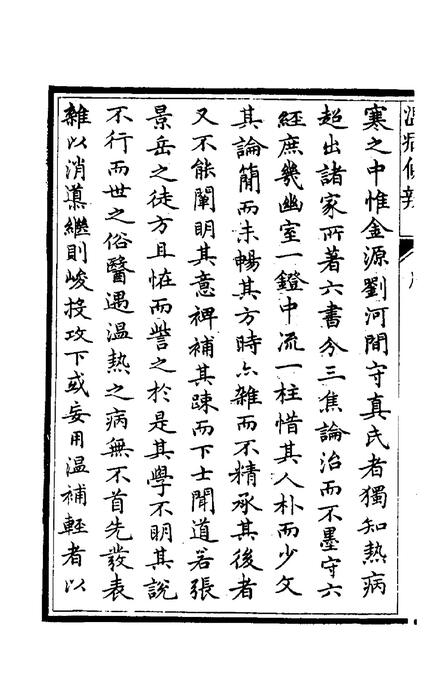 溫病條辨
寒之中惟金源劉河間守真氏者獨知熱病
超出諸家所著六書分三焦論治而不墨守六
經庶幾幽室一鐙中流一柱惜其人朴而少文
其論簡而未暢其方時亦雜而不精承其後者
又不能闡明其意裨補其踈而下士聞道若張
景岳之徒方且怪而訾之於是其學不明其說
不行而世之俗醫遇溫熱之病無不首先發表
雜以消導繼則峻投攻下或妄用溫補輕者以